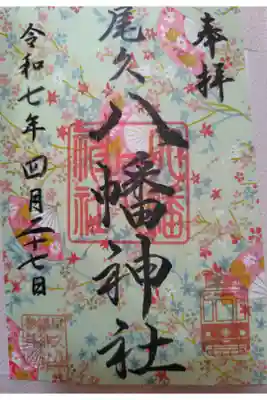 奉拝
尾久八幡神社
令和七年四月二十七日